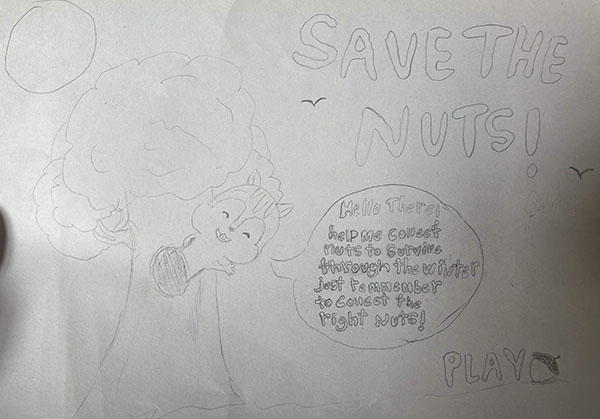 SAVE THE
NUTS!
Hello There!
help me collect
nuts to survive
through the winter
just remmember
to collect the
right nuts!
PLAY